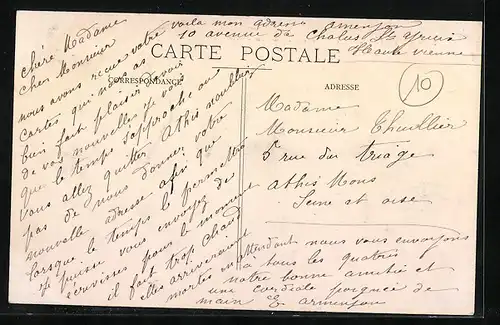 voila mon adresse armenjon
10 avenue de Chalus St Yrieix
Haute vienne
CARTE POSTALE
CORRESPONDANCE
ADRESSE
10
chère Madame
cher Monsieur
nous avons reçue votre
cartes qui nous as
bien fait plaisir d'avoir
de vos nouvelles je vois
que le temps s'approche ou
vous allez quitter Athis n'oubliez
pas de nous donner votre
nouvelle adresse afin que
lorsque le temps le permettra
je puisse vous envoyez de
écrevisses pour le moment
il fait trop chaud
elles arriveraient
mortes en attendant nous vous envoyons
à tous les quatres
notre bonne amitié et
une cordiale poignée de
main E armenjon
Madame
Monsieur Thuillier
5 rue du triage
athis Mons
Seine et oise